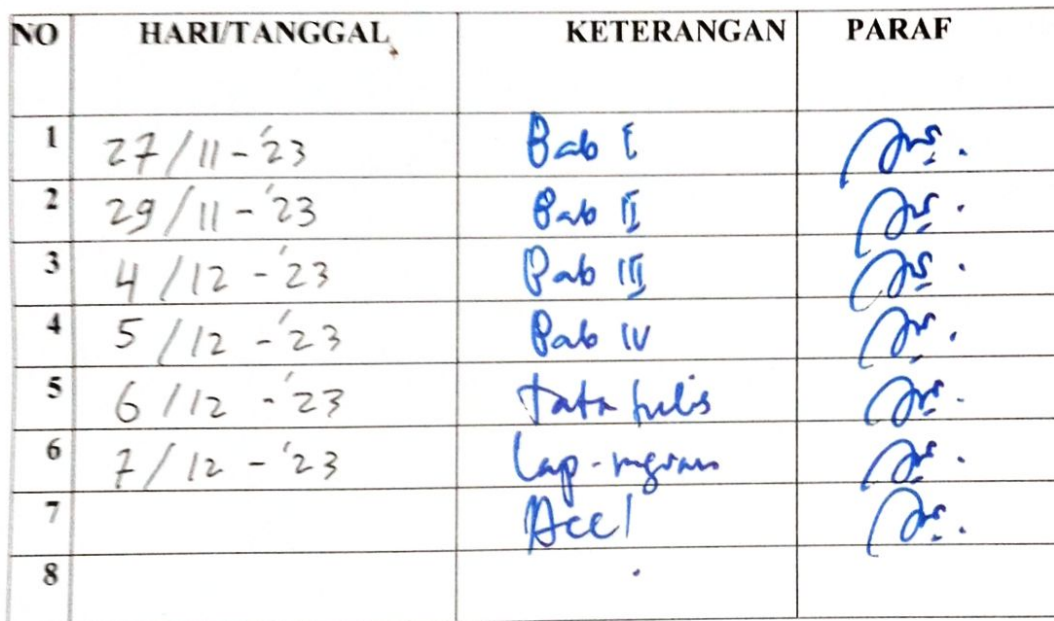 NO HARI/TANGGAL KETERANGAN PARAF
1 27/11-'23 Bab I
2 29/11-'23 Bab II
3 4/12-'23 Bab III
4 5/12-'23 Bab IV
5 6/12-'23 tata tulis
6 7/12-'23 Lap-
7 Acc
8